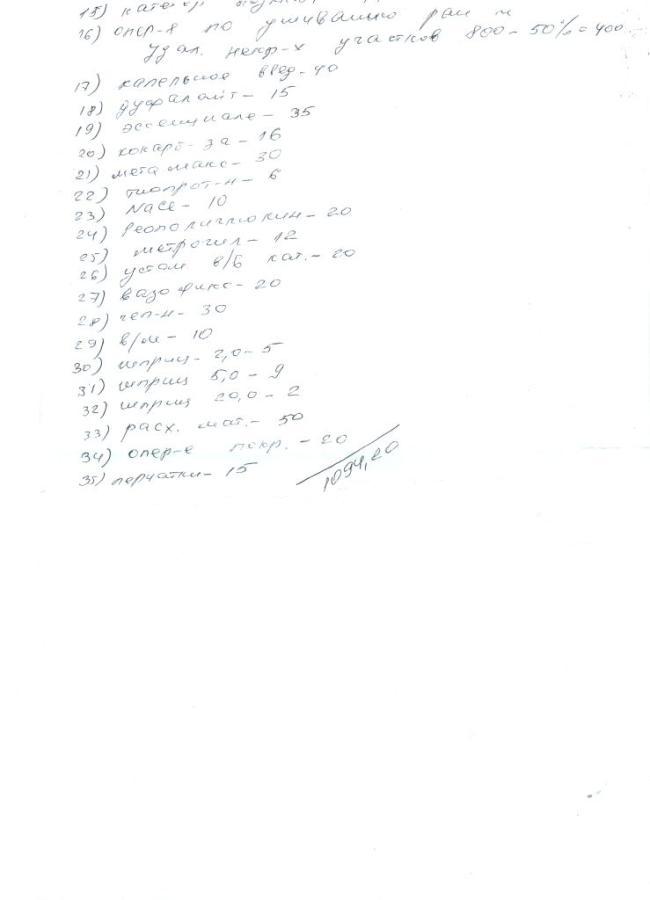 15) катетер
16) опер-я по ушиванию ран и
удал. некр-х участков 800 - 50% = 400
17) капельное введ - 40
18) дуфалайт - 15
19) эссенциале - 35
20) кокарб-за - 16
21) метамакс - 30
22) тиопрот-н - 6
23) NaCl - 10
24) Реополиглюкин - 20
25) метрогил - 12
26) устан в/в кат. - 20
27) вазофикс - 20
28) геп-н - 30
29) в/м - 10
30) шприц - 2,0 - 5
31) шприц 5,0 - 9
32) шприц 20,0 - 2
33) расх. мат. - 50
34) опер-е покр. - 20
35) перчатки - 15
1094,20